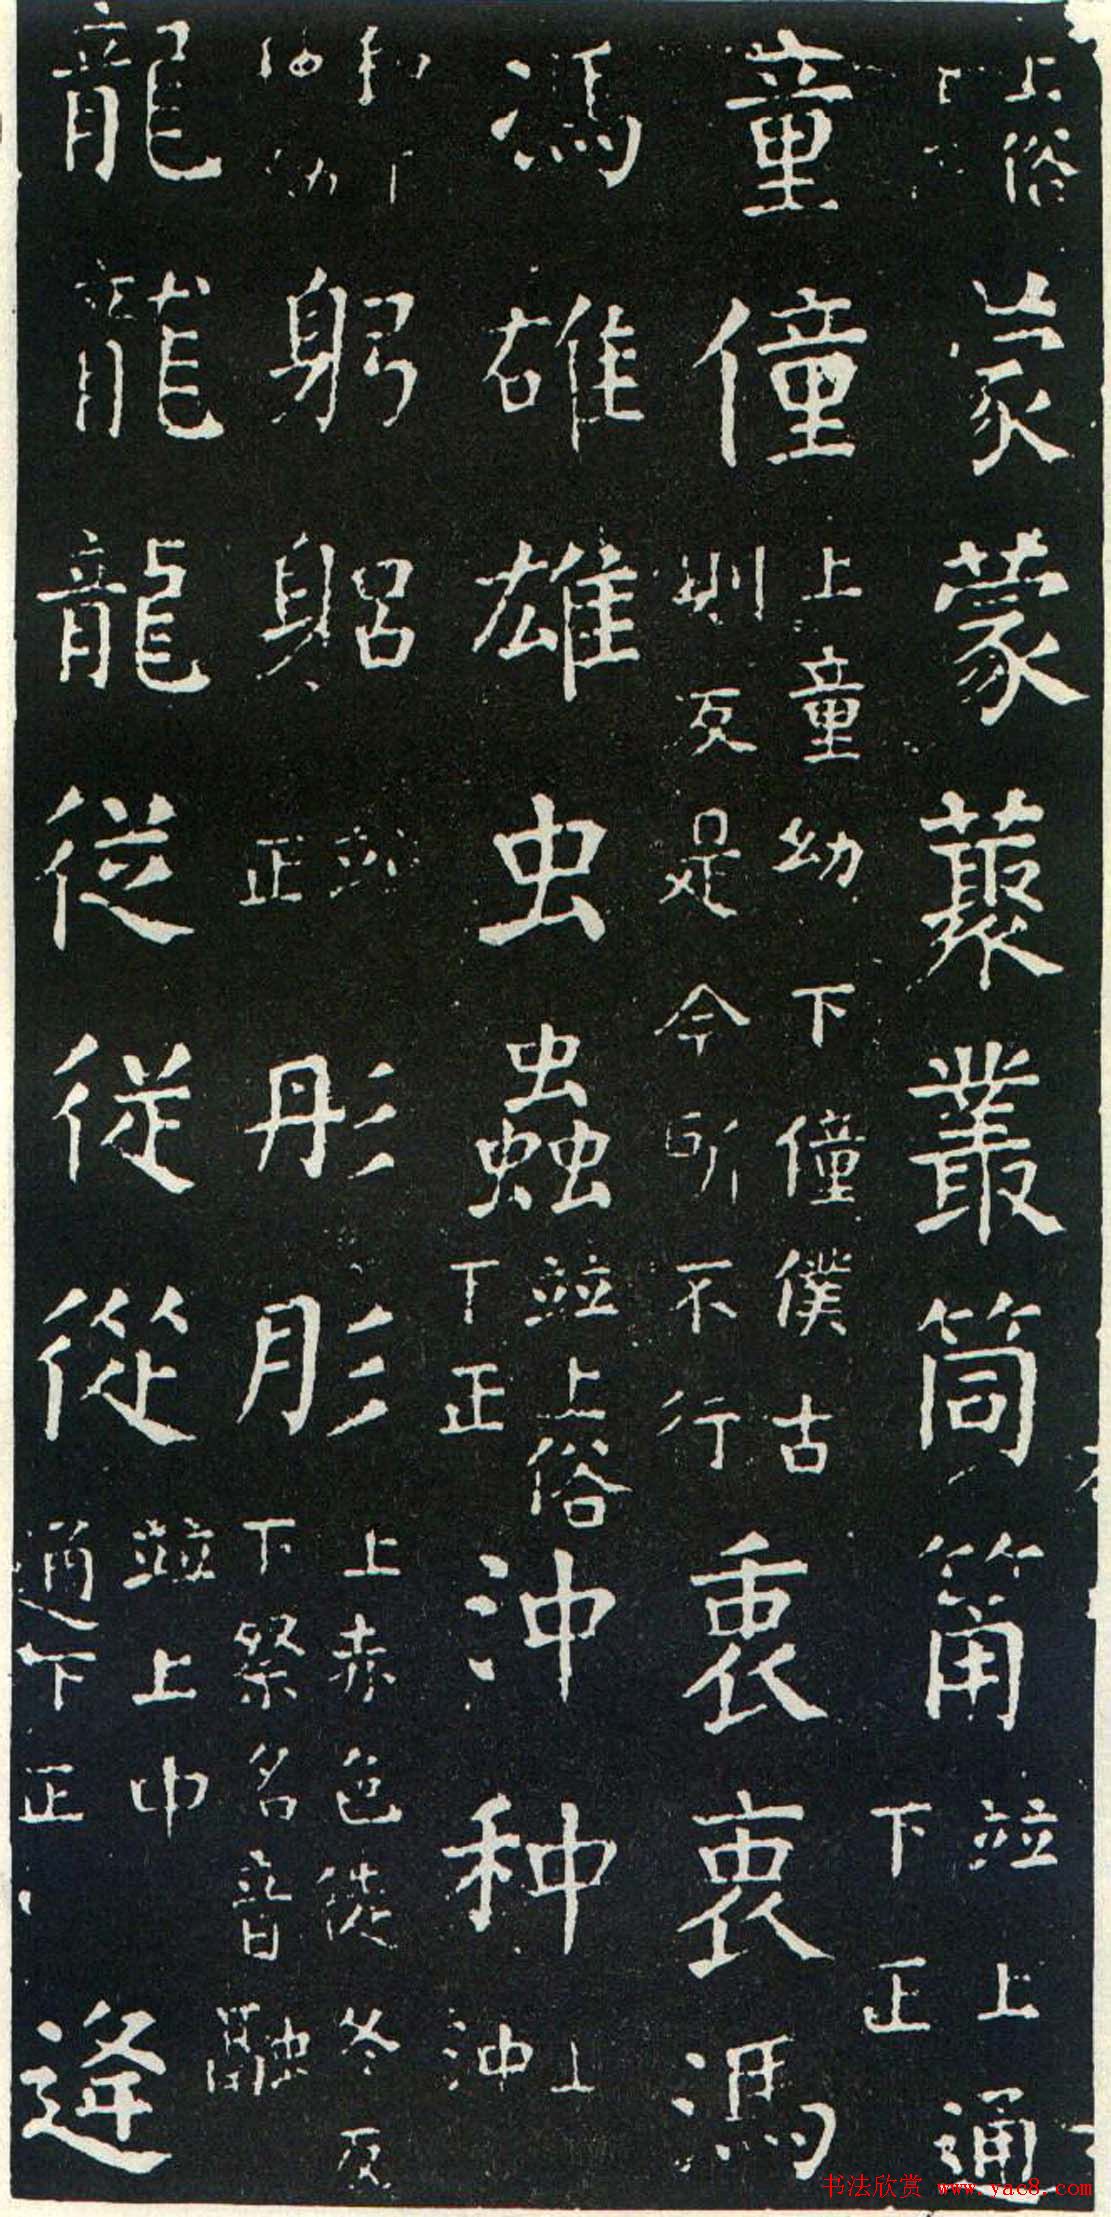 上俗蒙蒙藂叢筒筩並上通下正
童僮上童幼下僮僕古則反是今所不行衷衷馮
馮雄雄虫蟲並上俗下正沖种上沖
和下幼躬躳正彤肜上赤色徒冬反下祭名音融
龍龍龍従従從並上中通下正逢
书法欣赏 www.yac8.com